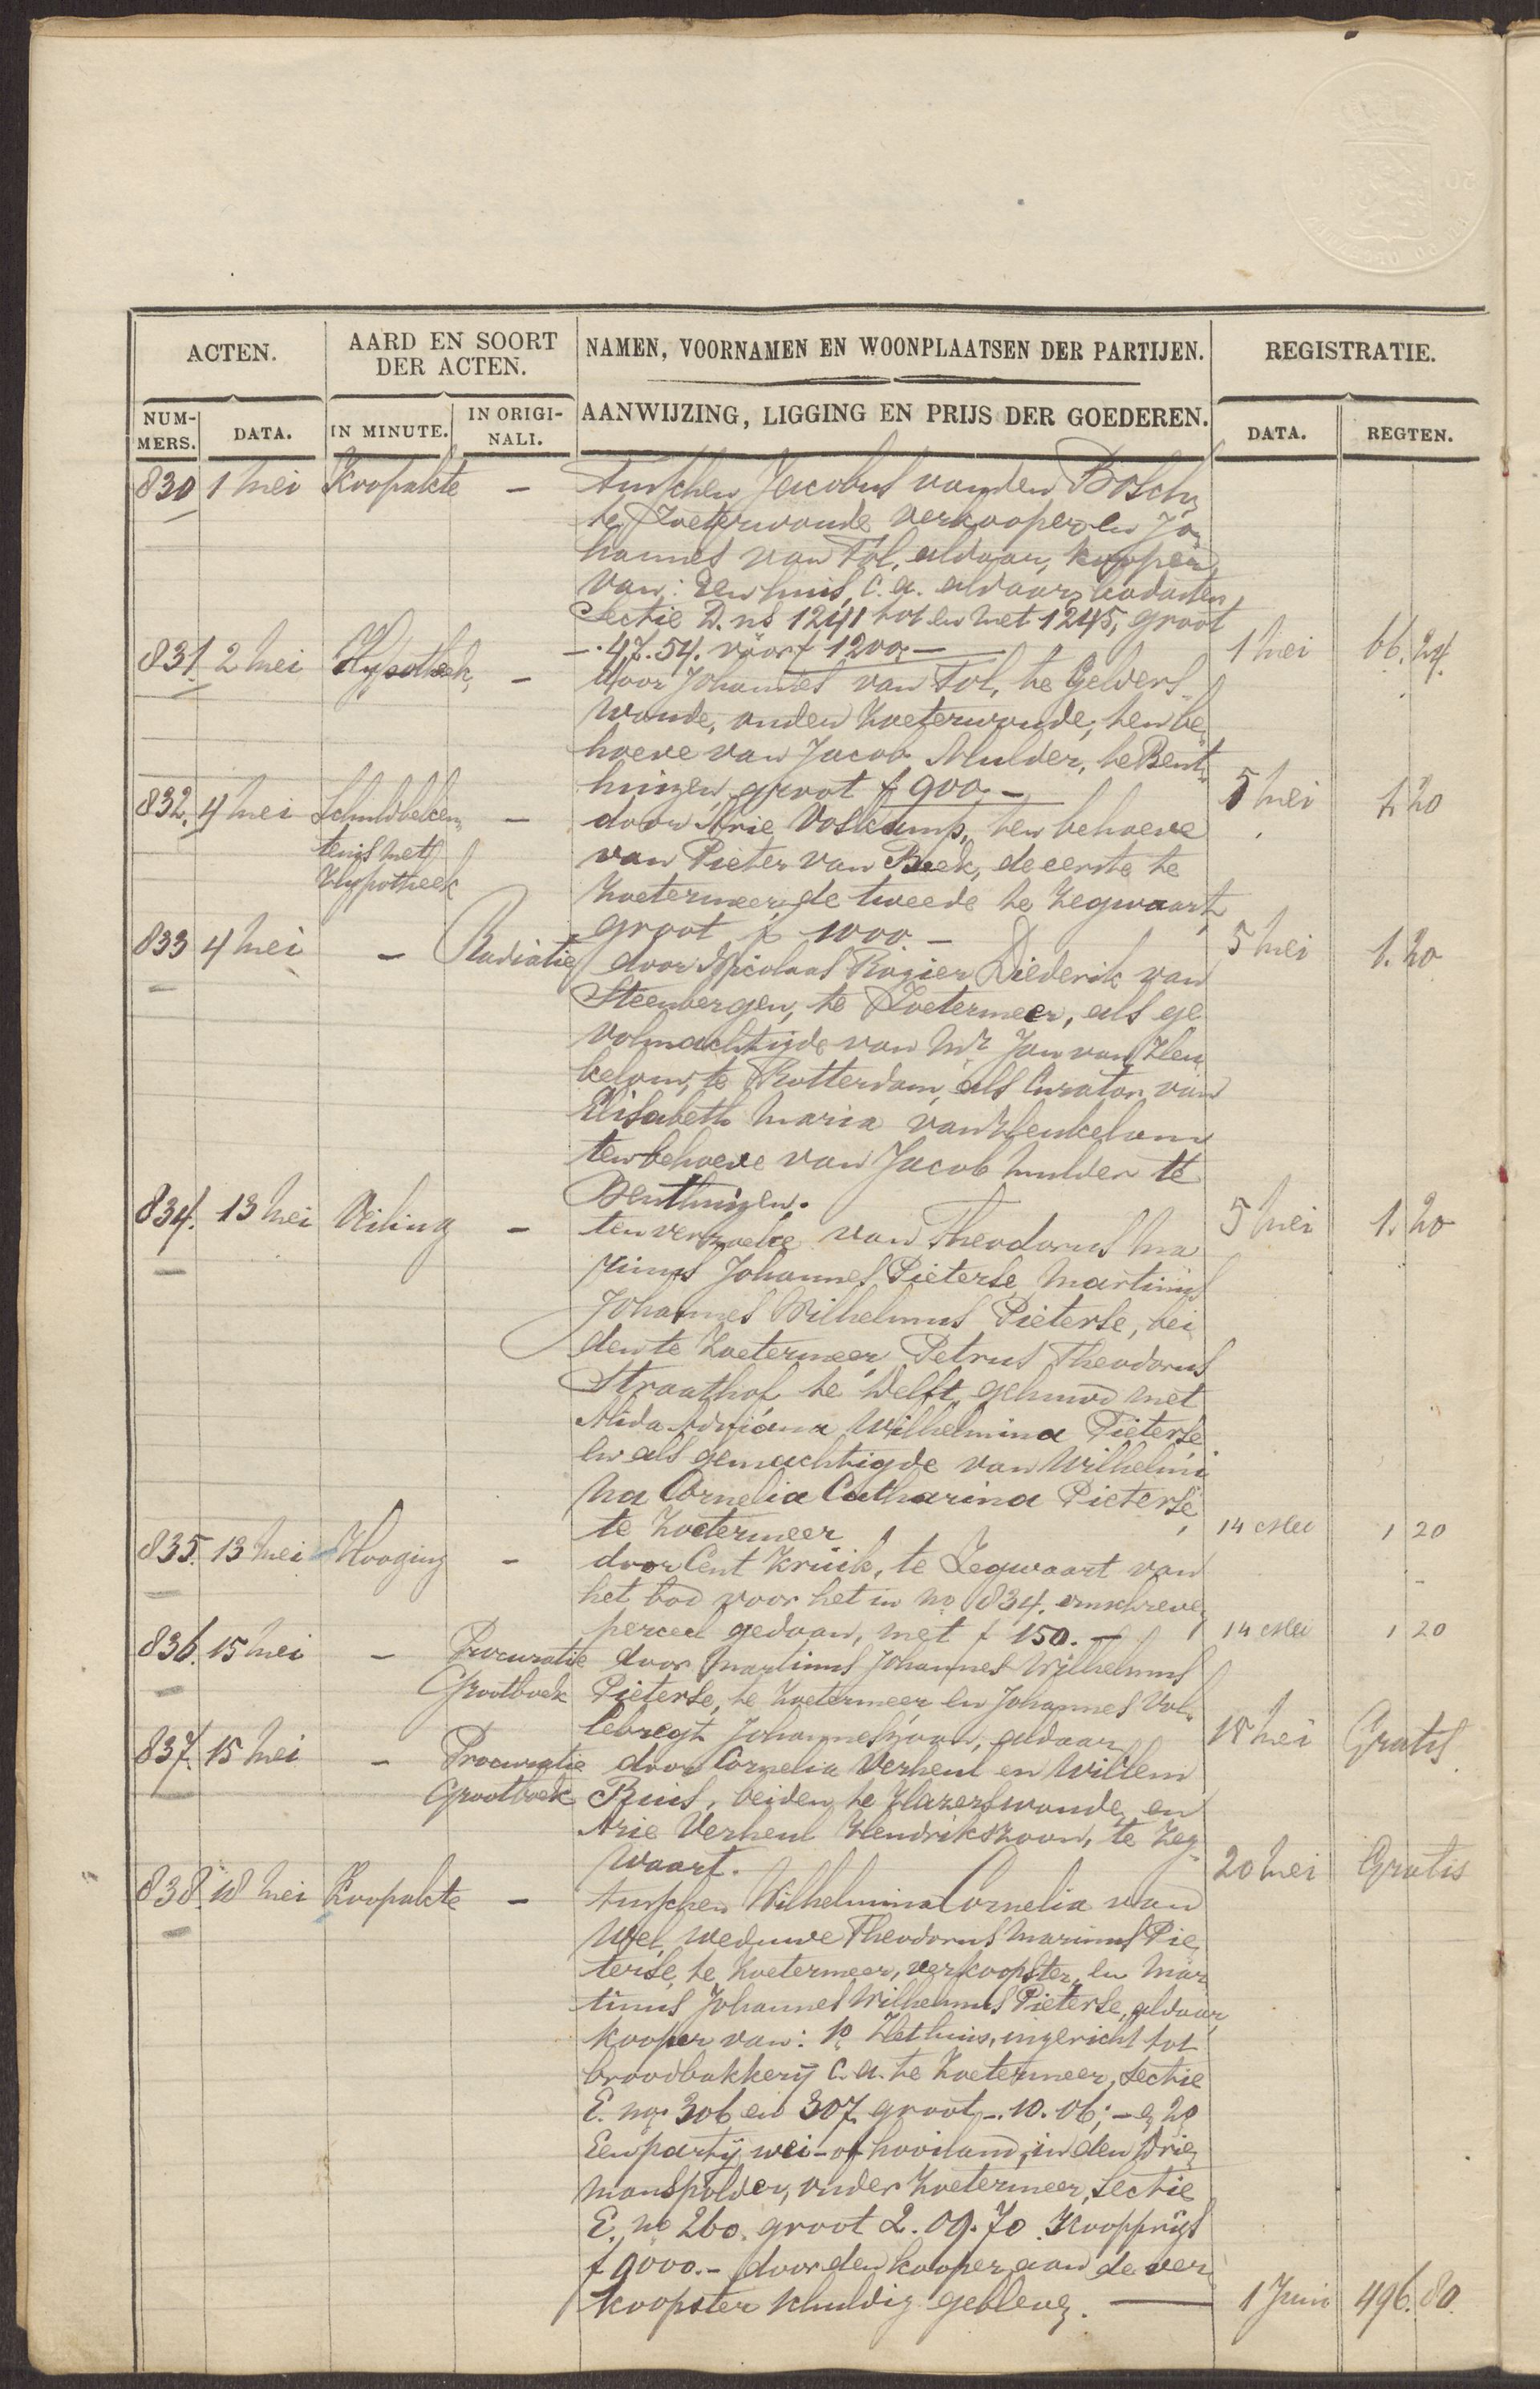 ACTEN.
AARD EN SOORT
DER ACTEN.
NAMEN, VOORNAMEN EN WOONPLAATSEN DER PARTIJEN.
REGISTRATIE.
NUM-
MERS.
DATA.
IN MINUTE.
IN ORIGI-
NALI.
AANWIJZING, LIGGING EN PRIJS DER GOEDEREN.
DATA.
REGTEN.
830 1 Mei Koopakte - tusschen Jacobus van den Bosch,
te Zoeterwoude verkooper en Jo,,
hannes van Tol, aldaar, kooper,
van: Een huis, c.a. aldaar, kadaster,
Sectie D. ns 1241 tot en met 1245, groot
-.47.54. voor f 1200,- 1 Mei 66. 24.
831. 2 Mei Hypotheek, - door Johannes van Tol, te Gelders,,
woude, onder Zoeterwoude, ten be,,
hoeve van Jacob Mulder, te Bent,,
huizen, groot f 900,- 5 Mei 1. 20
832. 4 Mei Schuldbeken,, - door Arie Voskamp, ten behoeve
tenis met van Pieter van Beek, de eerste te
Hypotheek Zoetermeer, de tweede te Zegwaart,
groot f 1000.- 5 Mei 1. 20
833 4 Mei - Radiatie door Nicolaas Rogier Diederik van
Steenbergen, te Zoetermeer, als ge
volmachtigde van Mr Jan van Heu
kelom, te Rotterdam, als Curator van
Elisabeth Maria van Heukelom
ten behoeve van Jacob Mulder te
Benthuizen. 5 Mei 1. 20
834. 13 Mei Veiling - ten verzoeke van Theodorus Ma
rinus Johannes Pieterse, Martinus
Johannes Wilhelmus Pieterse, bei
den te Zoetermeer, Petrus Theodorus
Straathof te Delft, gehuwd met
Alida Adriana Wilhelmina Pieterse
en als gemachtigde van Wilhelmi
na Cornelia Catharina Pieterse,
te Zoetermeer 14 Mei 1 20
835. 13 Mei Hooging - door Cent Kruik, te Zegwaart van
het bod voor het in no 834. omschreven
perceel gedaan, met f 150.- 14 Mei 1 20
836. 15 Mei - Procuratie door Martinus Johannes Wilhelmus
Grootboek Pieterse, te Zoetermeer en Johannes Vol,,
lebregt Johanneszoon, aldaar 18 Mei Gratis
837. 15 Mei - Procuratie door Cornelia Verheul en Willem
Grootboek Buis, beiden te Hazerswoude, en
Arie Verheul Hendrikszoon, te Zeg,,
waart. 20 Mei Gratis
838. 18 Mei Koopakte - tusschen Wilhelmina Cornelia van
Wel, weduwe Theodorus Marinus Pie,,
terse, te Zoetermeer, verkoopster, en Mar
tinus Johannes Wilhelmus Pieterse, aldaar,
kooper van: 1o Het huis, ingericht tot
broodbakkerij c.a. te Zoetermeer, Sectie
E. nos 306 en 307 groot -.10.06; - en 2o
Een partij wei- of hooiland, in den Drie,,
manspolder, onder Zoetermeer, Sectie
E. no 260. groot 2.09.70. Koopprijs
f 9000.- door den kooper aan de ver,,
koopster schuldig gebleven. 1 Juni 496. 80.